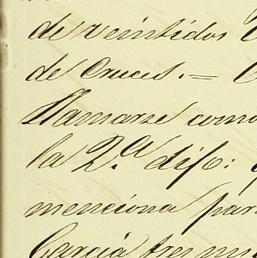 de veintidos
de Cruces. =
llamarse como
la 2.ª dijo:
menciona par
Garcia tres mi